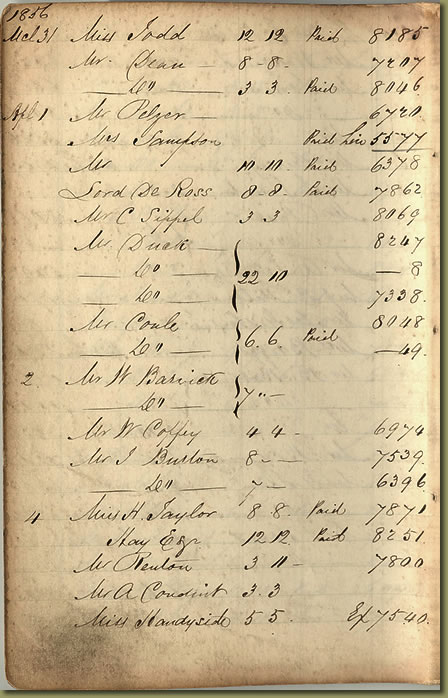 1856
Mch 31 Miss Todd 12 12 Paid 8185
Mr. Dean 8 - 8 - 7207
— Do — 3 3 Paid 8046
Apl 1 Mr Pelzer — 6720
Mrs Sampson Paid 5577
Mr 10 10 - Paid 6378
Lord De Ross 8 - 8 - Paid 7862
Mr C Sippel 3 3 8069
Mr Duck — 8247
— Do — 22 10 — 8
— Do — 7338.
Mr Coule 8048
— Do — 6. 6. Paid — 49.
2 Mr W Barwick
— Do — 7 " -
Mr W Coffey 4 4 - 6974
Mr J Burton 8 - — 7539.
— Do — 7 — 6396
4 Miss H. Taylor 8 8 - Paid 7871
Hay Esqr 12 12 Paid 8251
Mr Renton 3 11 - 7800
Mr A 3 . 3
Miss Handyside 5 5 . Ex 7540.